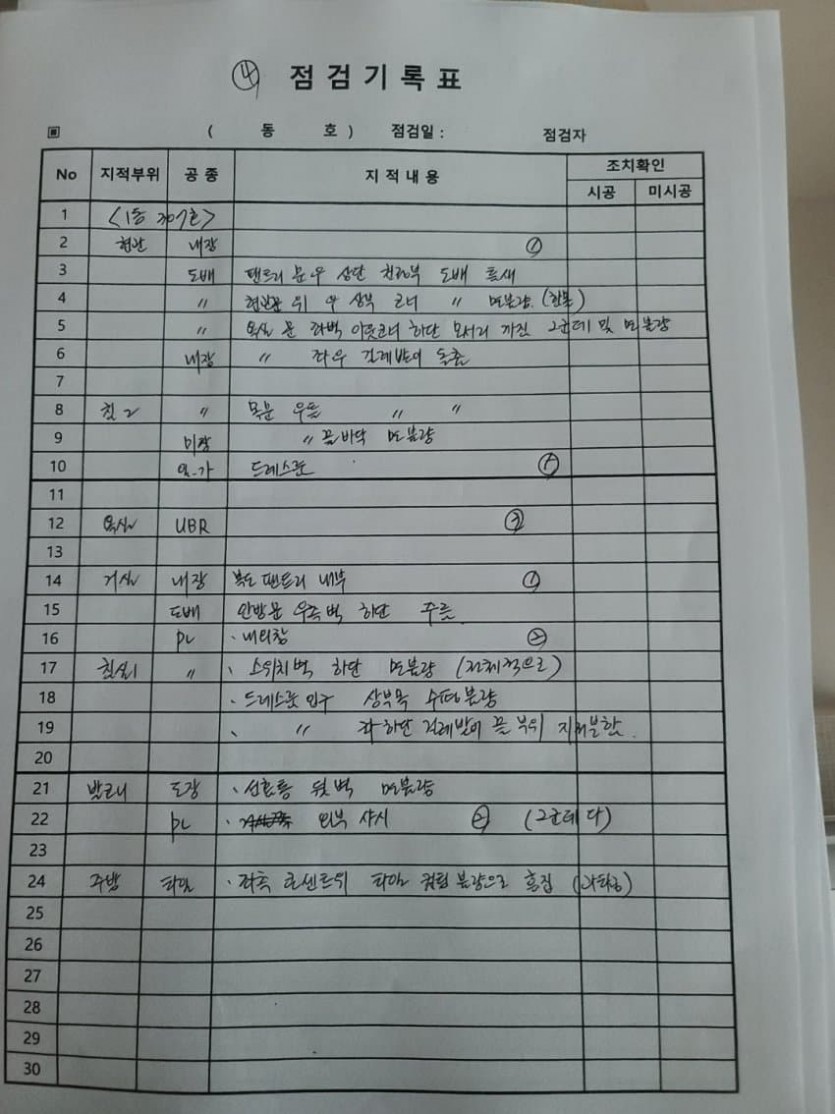 ④ 점검기록표
▣ ( 동 호 ) 점검일 : 점검자
No 지적부위 공 종 지 적 내 용 조치확인
시공 미시공
1 <1동 307호>
2 현관 내장 ①
3 도배 팬트리 문 우 상단 천정부 도배 틈새
4 〃 현관문 위 우 상부 코너 〃 면불량.
5 〃 욕실 문 좌벽 아웃코너 하단 모서리 까짐 2군데 및 면불량
6 내장 〃 좌우 걸레받이 돌출
7
8 침2 〃 목문 우측 〃 〃
9 미장 〃 끝바닥 면불량
10 일.가 드레스룸
11
12 욕실 UBR ③
13
14 거실 내장 복도 팬트리 내부 ①
15 도배 안방문 우측 벽 하단 주름.
16 PL · 내외창 ②
17 침실1 〃 · 스위치벽 하단 면불량 (전체적으로)
18 · 드레스룸 입구 상부목 수평불량
19 · 〃 좌 하단 걸레받이 끝 부위 지저분함.
20
21 발코니 도장 · 선홈통 뒷벽 면불량
22 PL · 외부 샤시 ② (2군데 다)
23
24 주방 타일 · 좌측 콘센트위 타일 컷팅 불량으로 홈집
25
26
27
28
29
30